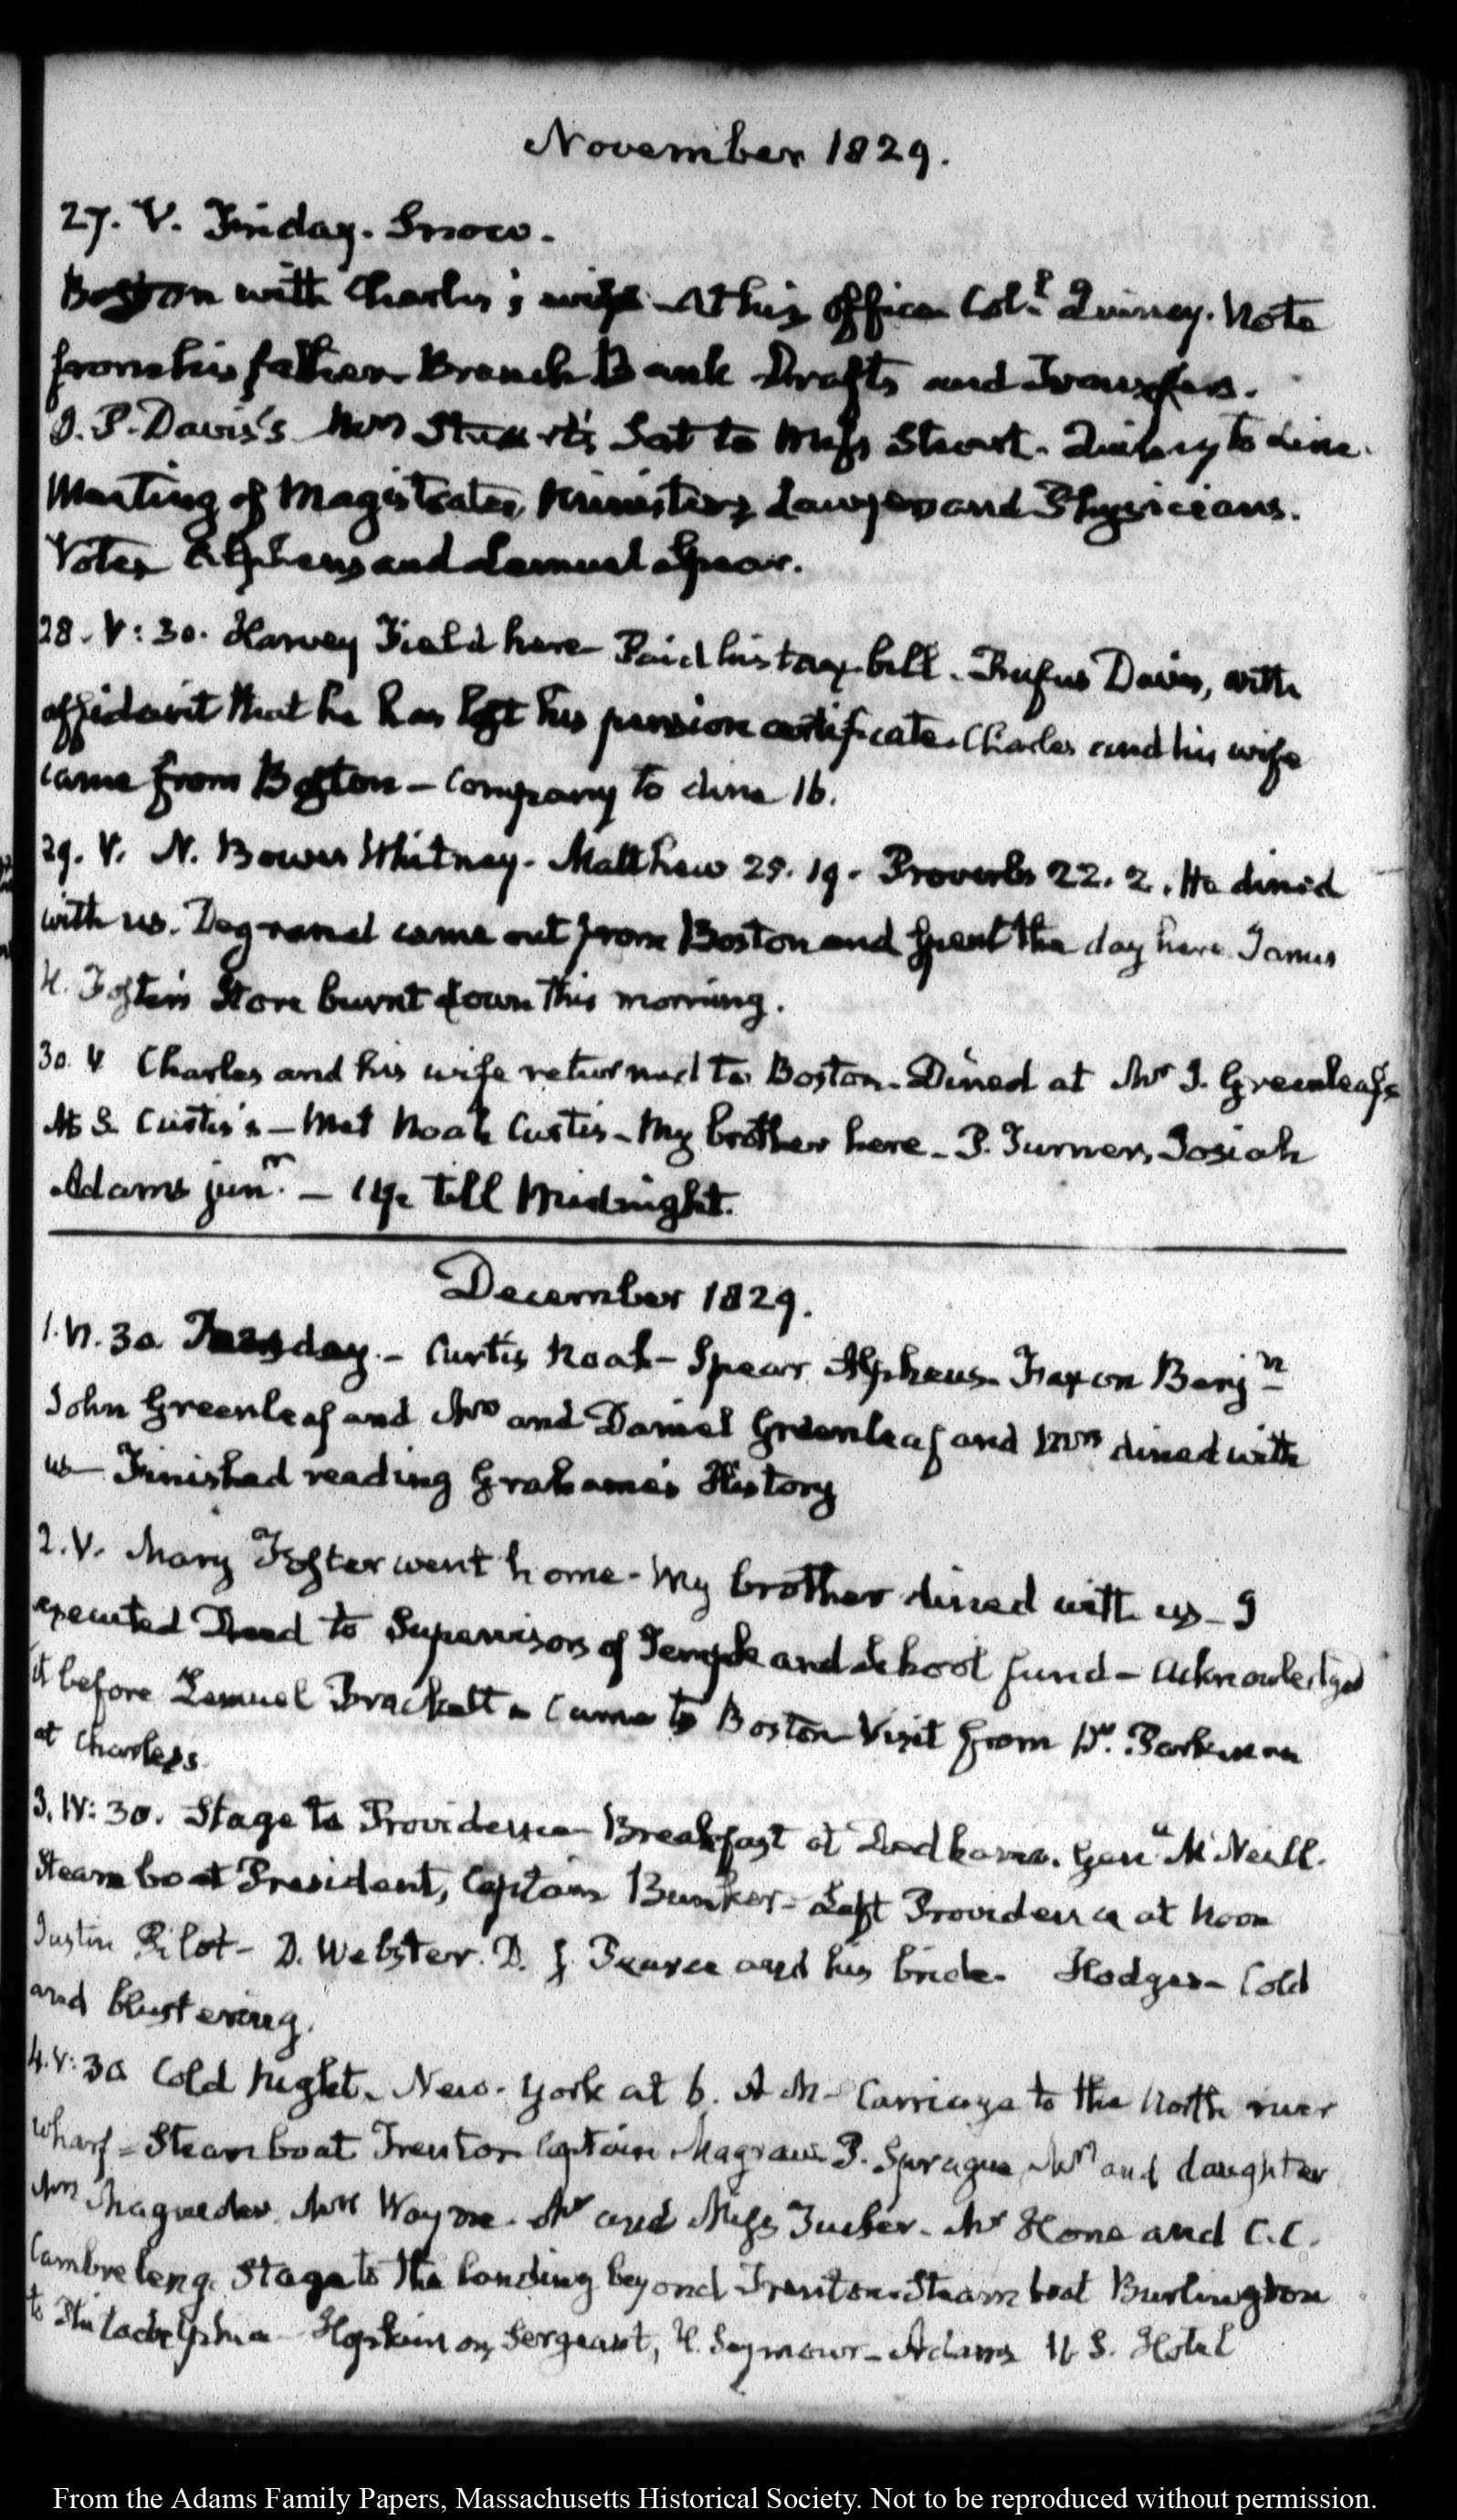 November 1829.
27. V. Friday. Snow.
Boston with Charles's wife - At his office Col.l Quincy. Note
from his father Branch Bank Drafts and Transfers.
I. P. Davis's Mrs Stuart's Sat to Miss Stuart. Quincy to dine.
Meeting of Magistrates, Ministers Lawyers and Physicians.
Votes Alpheus and Lemuel Spear.
28. V: 30. Harvey Field here Paid his tax bill. Rufus Davis, with
affidavit that he has lost his pension certificate. Charles and his wife
came from Boston - Company to dine 16.
29. V. N. Bowes Whitney. Matthew 25. 19. Proverbs 22. 2. He dined
with us. Degrand came out from Boston and spent the day here. James
H. Foster's Store burnt down this morning.
30. V Charles and his wife returned to Boston. Dined at Mr J. Greenleaf's
At S. Curtis's - Met Noah Curtis - My brother here - P. Turner, Josiah
Adams junr. - till Midnight.
December 1829.
1. IV. 30 Tuesday. - Curtis Noah - Spear Alpheus. Faxon Benjn
John Greenleaf and Mrs and Daniel Greenleaf and Mrs dined with
us - Finished reading Grahame's History
2. V. Mary Foster went home - My brother dined with us - I
executed Deed to Supervisors of Temple and School fund - acknowledged
it before Lemuel Brackett - Came to Boston Visit from Dr. Parkman
at Charles's.
3. IV: 30. Stage to Providence Breakfast at Dedham. Genl McNeill.
Steam boat President, Captain Bunker - Left Providence at Noon
Pilot - D. Webster. D. J. Pearce and his bride. Hodges - Cold
and blustering.
4. V: 30 Cold Night. New-York at 6. A M - Carriage to the North river
wharf - Steam boat Trenton Captain Magraw P. Sprague, Mrs and daughter
Mrs Magruder. Mrs Wayne. Mr and Miss Tucker. Mr Hone and C. C.
Cambreleng. Stage to the landing beyond Trenton. Steam boat Burlington
to Philadelphia - Hopkinson, Sergeant, H. Seymour - Adams U S. Hotel
From the Adams Family Papers, Massachusetts Historical Society. Not to be reproduced without permission.